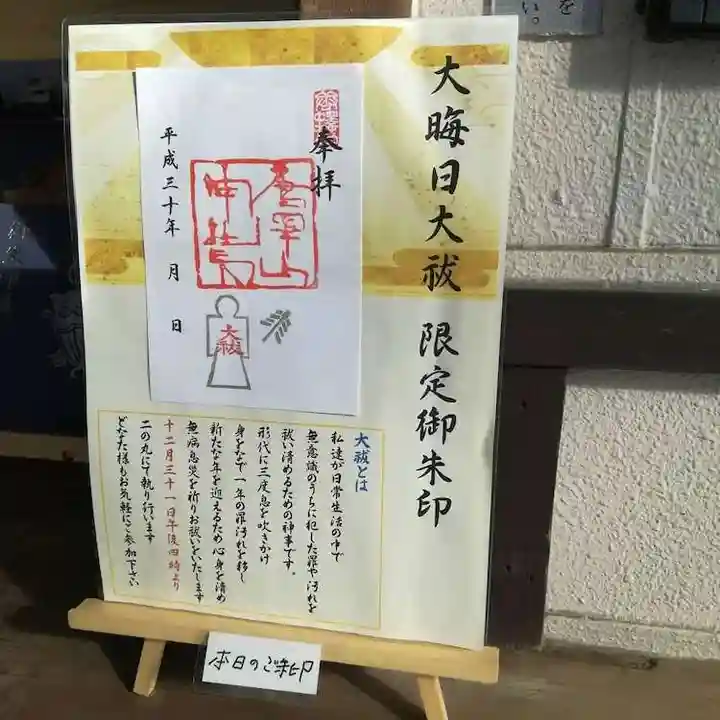 大晦日大祓 限定御朱印
奉拝
平成三十年 月 日
大祓
大祓とは
私達が日常生活の中で
無意識のうちに犯した罪や汚れを
祓い清めるための神事です。
形代に三度息を吹きかけ
身をなで一年の罪汚れを移し
新たな年を迎えるため心身を清め
無病息災を祈りお祓いをいたします
十二月三十一日午後四時より
二の丸にて執り行います
どなた様もお気軽にご参加下さい
本日のご朱印
を
い。